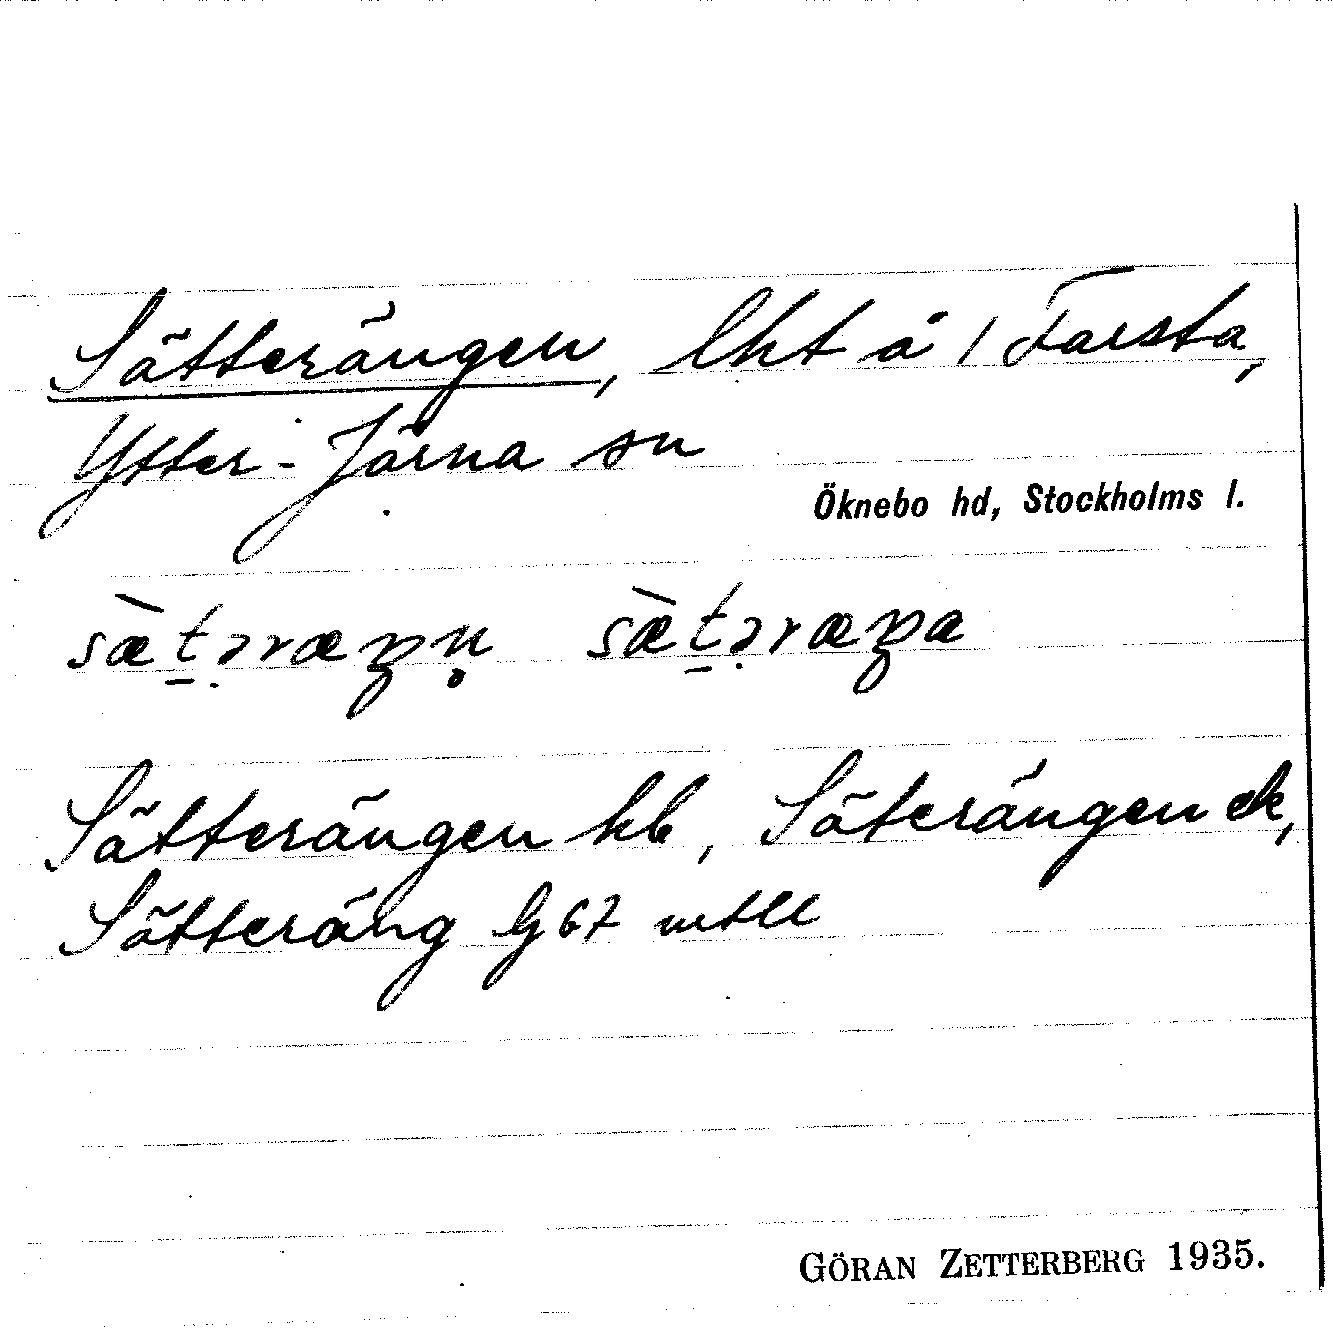 Sätterängen, lht å 1 Farsta,
Ytter-Järna sn
Öknebo hd, Stockholms l.
Sätterängen hb, Säterängen ek,
Sätteräng Lg 67 mtll
GÖRAN ZETTERBERG 1935.